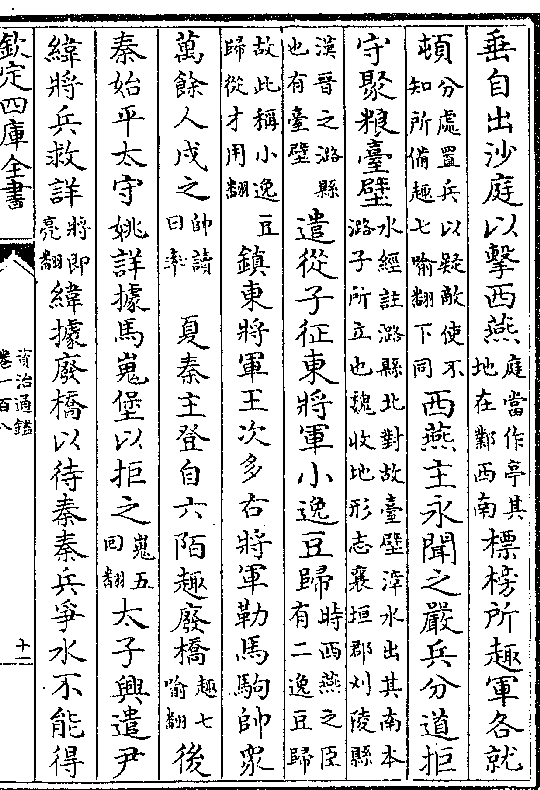 垂自出沙庭以擊西燕庭當作亭其地在鄴西南標榜所趣軍各就
頓分處置兵以疑敵使不知所備趣七喻翻下同西燕主永聞之嚴兵分道拒
守聚粮臺壁水經註潞縣北對故臺壁漳水出其南本潞子所立也魏收地形志襄垣郡刈陵縣
漢晉之潞縣也有臺壁遣從子征東將軍小逸豆歸時西燕之臣有二逸豆歸
故此稱小逸豆歸從才用翻鎮東將軍王次多右將軍勒馬駒帥衆
萬餘人戍之帥讀曰率夏秦主登自六陌趣廢橋趣七喻翻後
秦始平太守姚詳據馬嵬堡以拒之嵬五回翻太子興遣尹
緯將兵救詳將即亮翻緯據廢橋以待秦秦兵爭水不能得
欽定四庫全書
資治通鑑
卷一百八
十一